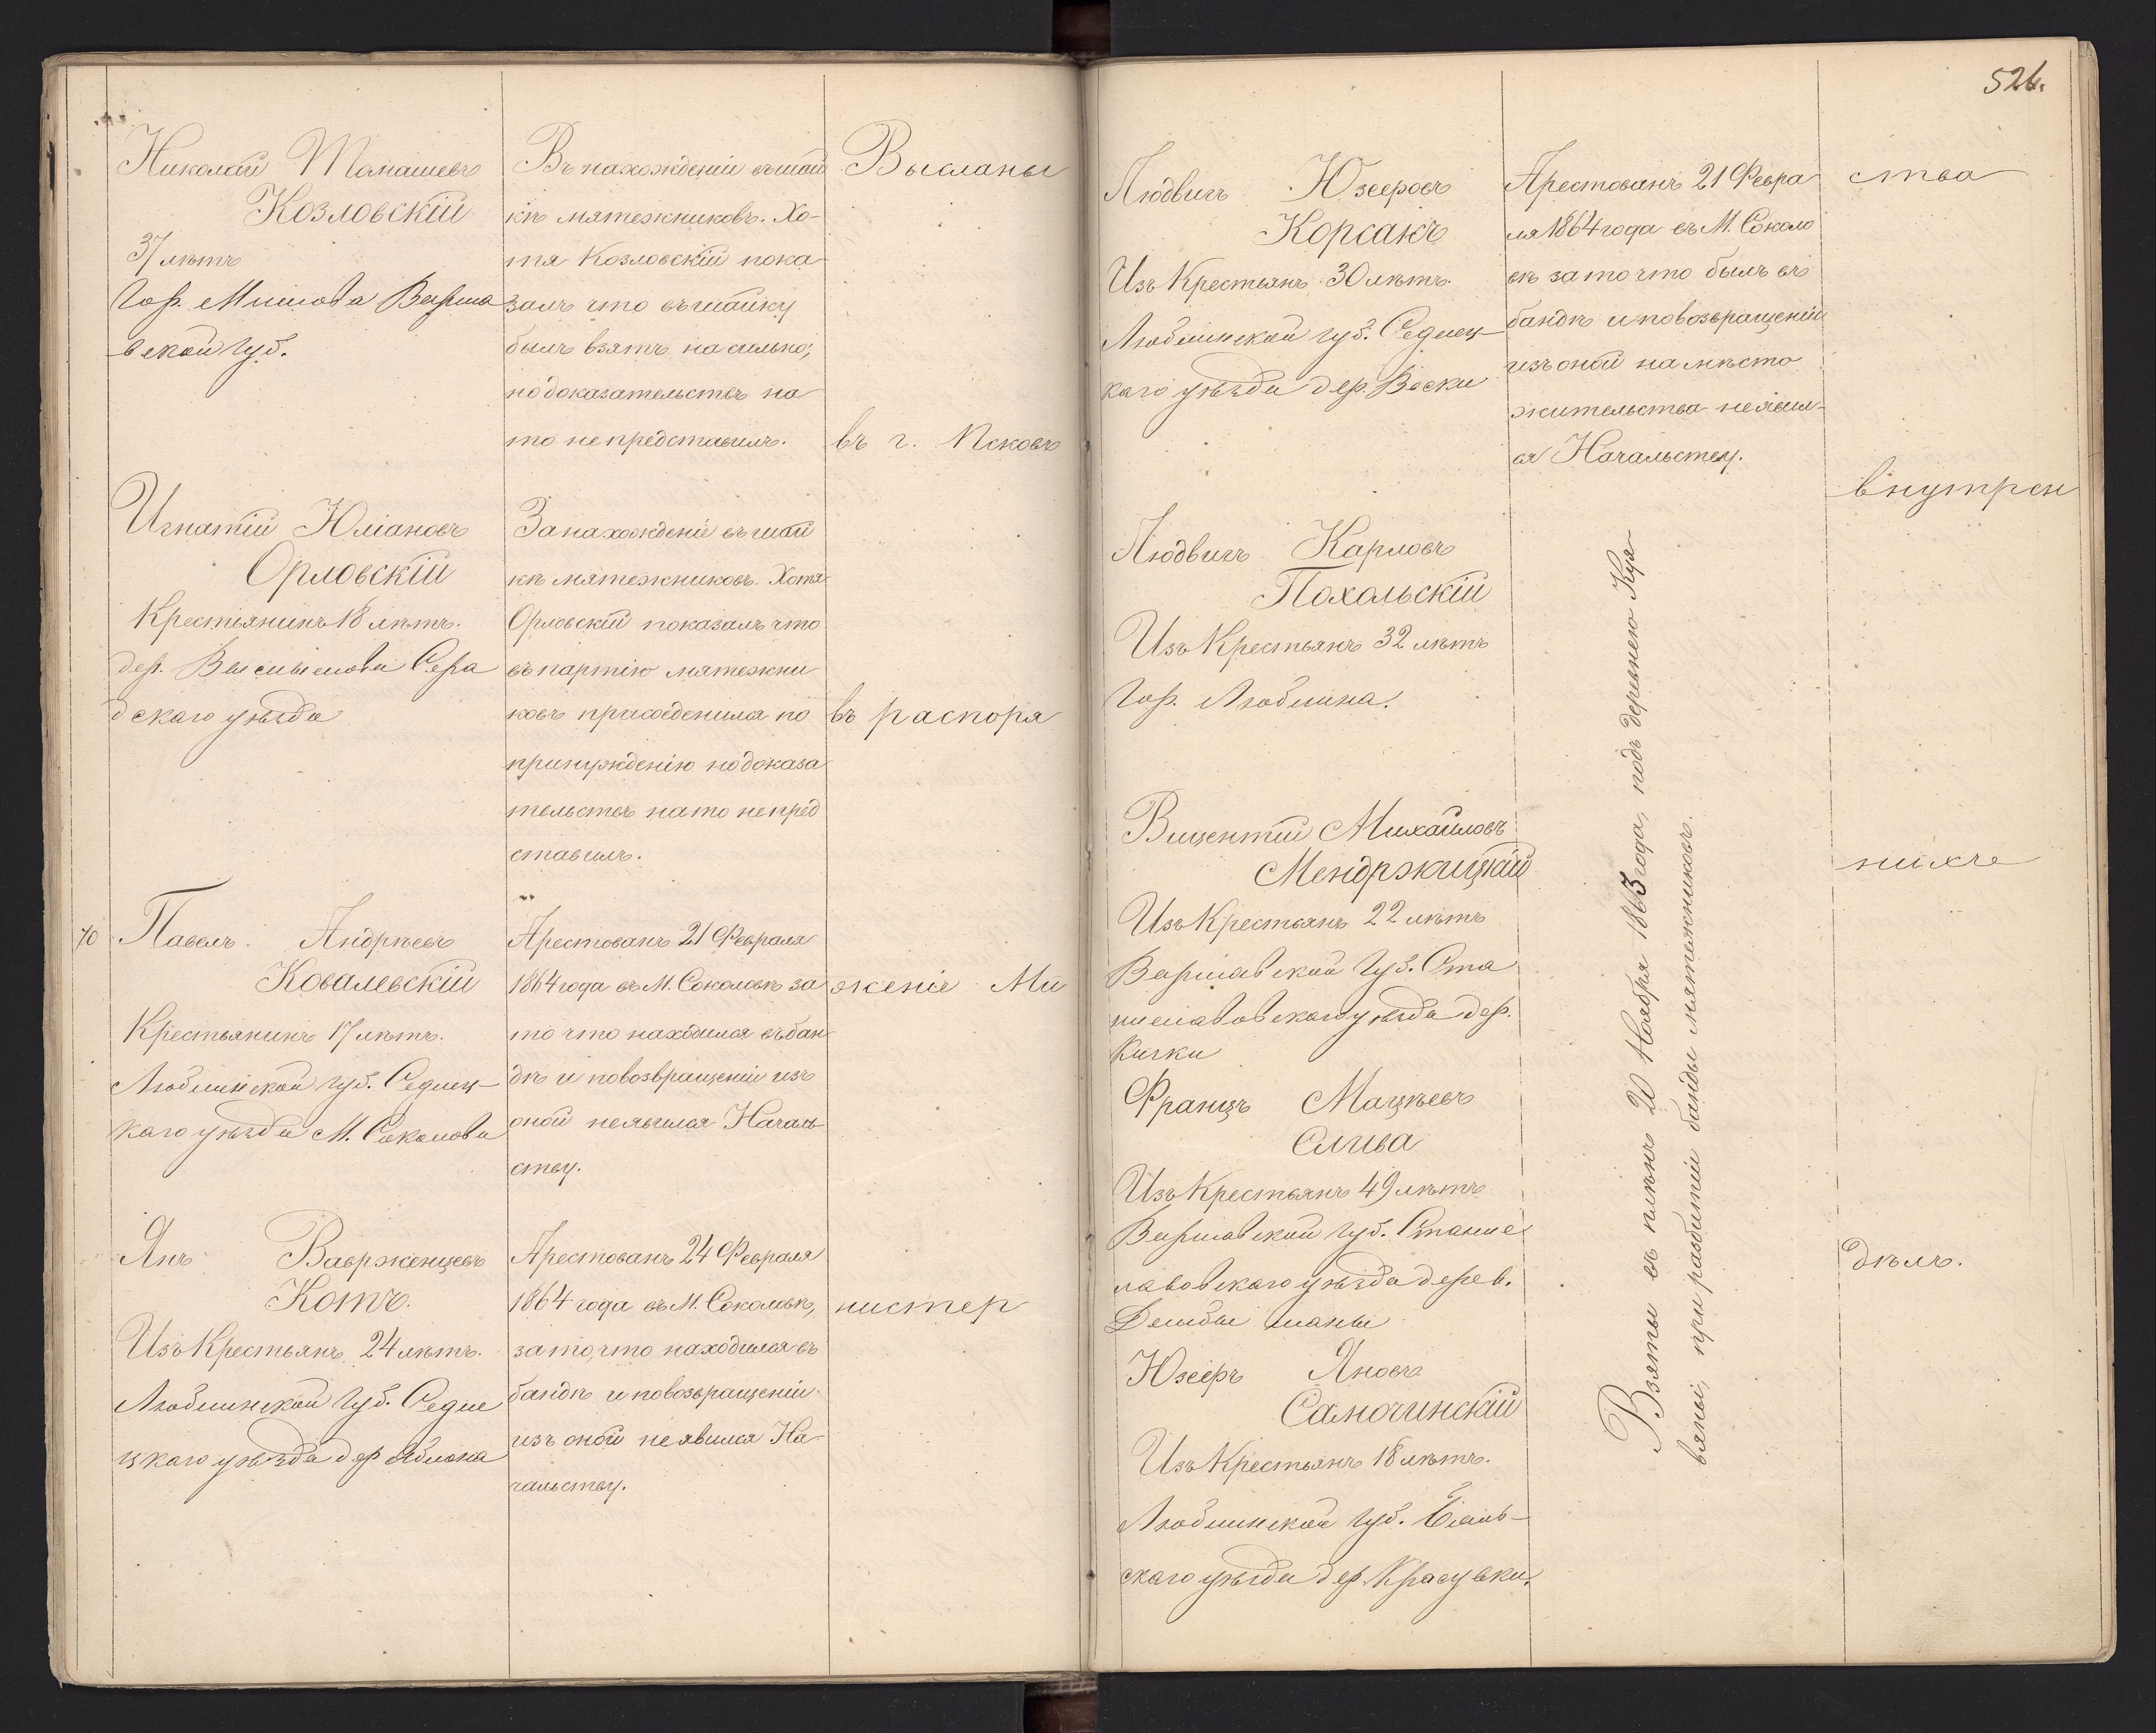 Николай Томашевъ
Козловскій
37 лѣтъ
Гор. Варша
вской губ.
Въ нахожденіи въ шай
кѣ мятежниковъ. Хо-
тя Козловскій пока
залъ что въ шайку
былъ взятъ насильно,
но доказательствъ на
то не представилъ.
Высланы
въ г. Псковъ
Игнатій Юліановъ
Орловскій
Крестьянинъ 18 лѣтъ.
дер. Сера
дскаго уѣзда
За нахожденіе въ шай
кѣ мятежниковъ. Хотя
Орловскій показалъ что
въ партію мятежни
ковъ присоеденился по
принужденію но доказа
тельствъ на то не пред
ставилъ.
въ распоря
70
Павелъ Андрѣевъ
Ковалевскій
Крестьянинъ 17 лѣтъ.
Люблинской губ. Седлец-
каго уѣзда М. Соколова
Арестованъ 21 Февраля
1864 года въ М. Соколовѣ за
то что находился въ бан
дѣ и по возвращеніи изъ
оной не явился Началь
ству.
женіе Ми
Янъ Вавржецевъ
Котъ.
Изъ Крестьянъ 24 лѣтъ.
Люблинской Губ. Седле
цкаго уѣзда дер Яблона
Арестованъ 24 Февраля
1864 года въ М. Соколовѣ,
за то, что находился въ
бандѣ и по возвращеніи
изъ оной не явился На-
чальству.
нистер
526.
Людвигъ Юзефовъ
Корсакъ
Изъ Крестьянъ 30 лѣтъ.
Люблинской губ. Седлец-
каго уѣзда дер. Воски
Арестованъ 21 Февра
ля 1864 года въ М. Соколо
вѣ за то что былъ въ
бандѣ и по возвращеніи
изъ оной на мѣсто
жительства не явил-
ся Начальству.
ства
внутрен
Людвигъ Карловъ
Похольскій
Изъ Крестьянъ 32 лѣтъ
Гор. Люблина.
Вицентій Михайловъ
Мендржицкій
Изъ Крестьянъ 22 лѣтъ
Варшавской Губ. Ста
ниславовскаго уѣзда дер.
Кички
нихъ
Францъ Мацѣевъ
Слива
Изъ Крестьянъ 49 лѣтъ
Варшавской губ. Станис
лавовскаго уѣзда дерев.
Юзефъ Яновъ
Самочинскій
Изъ Крестьянъ 18 лѣтъ.
Люблинской губ. Бѣль-
скаго уѣзда дер. Красувки.
Взяты въ плѣнъ 20 Ноября 1863 года, подъ деревнею Куя-
вяны, при разбитіи банды мятежниковъ.
дѣлъ.